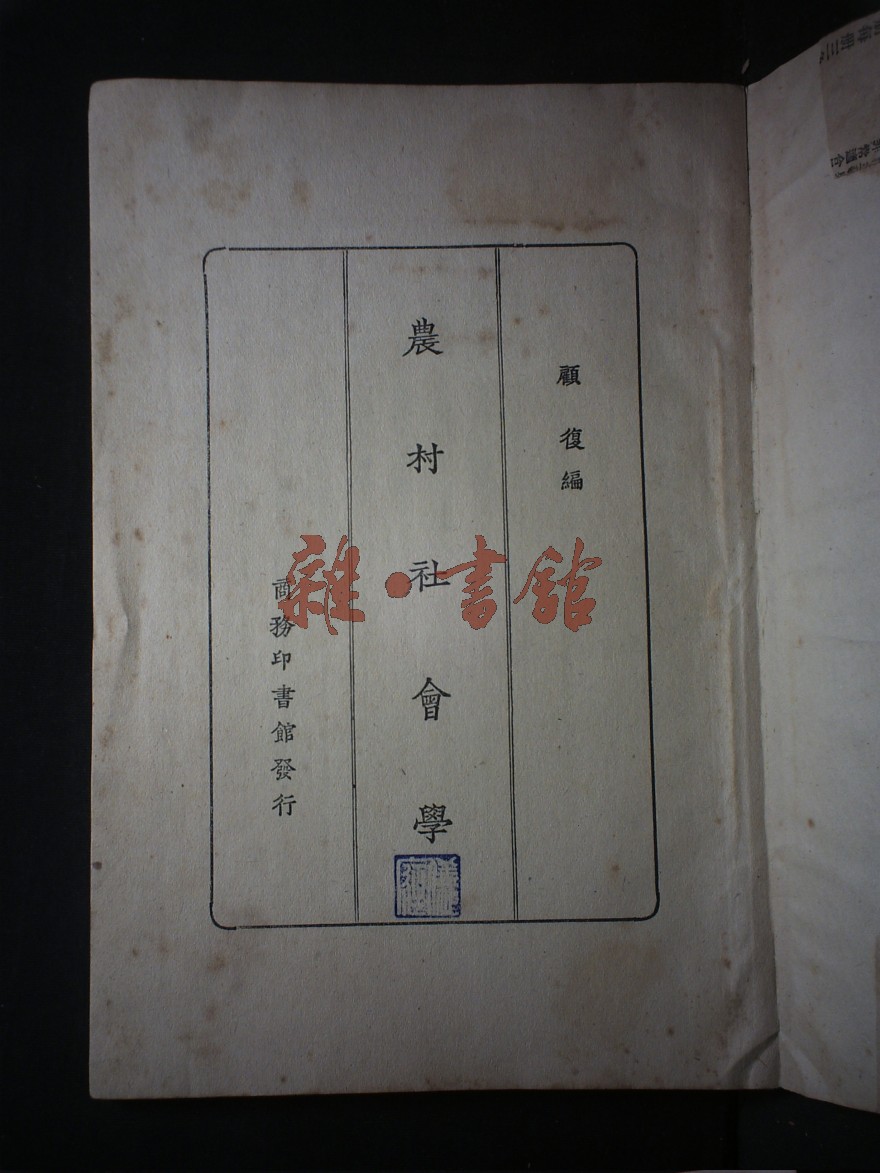 顧復編
農村社會學
商務印書館發行
雜·書館